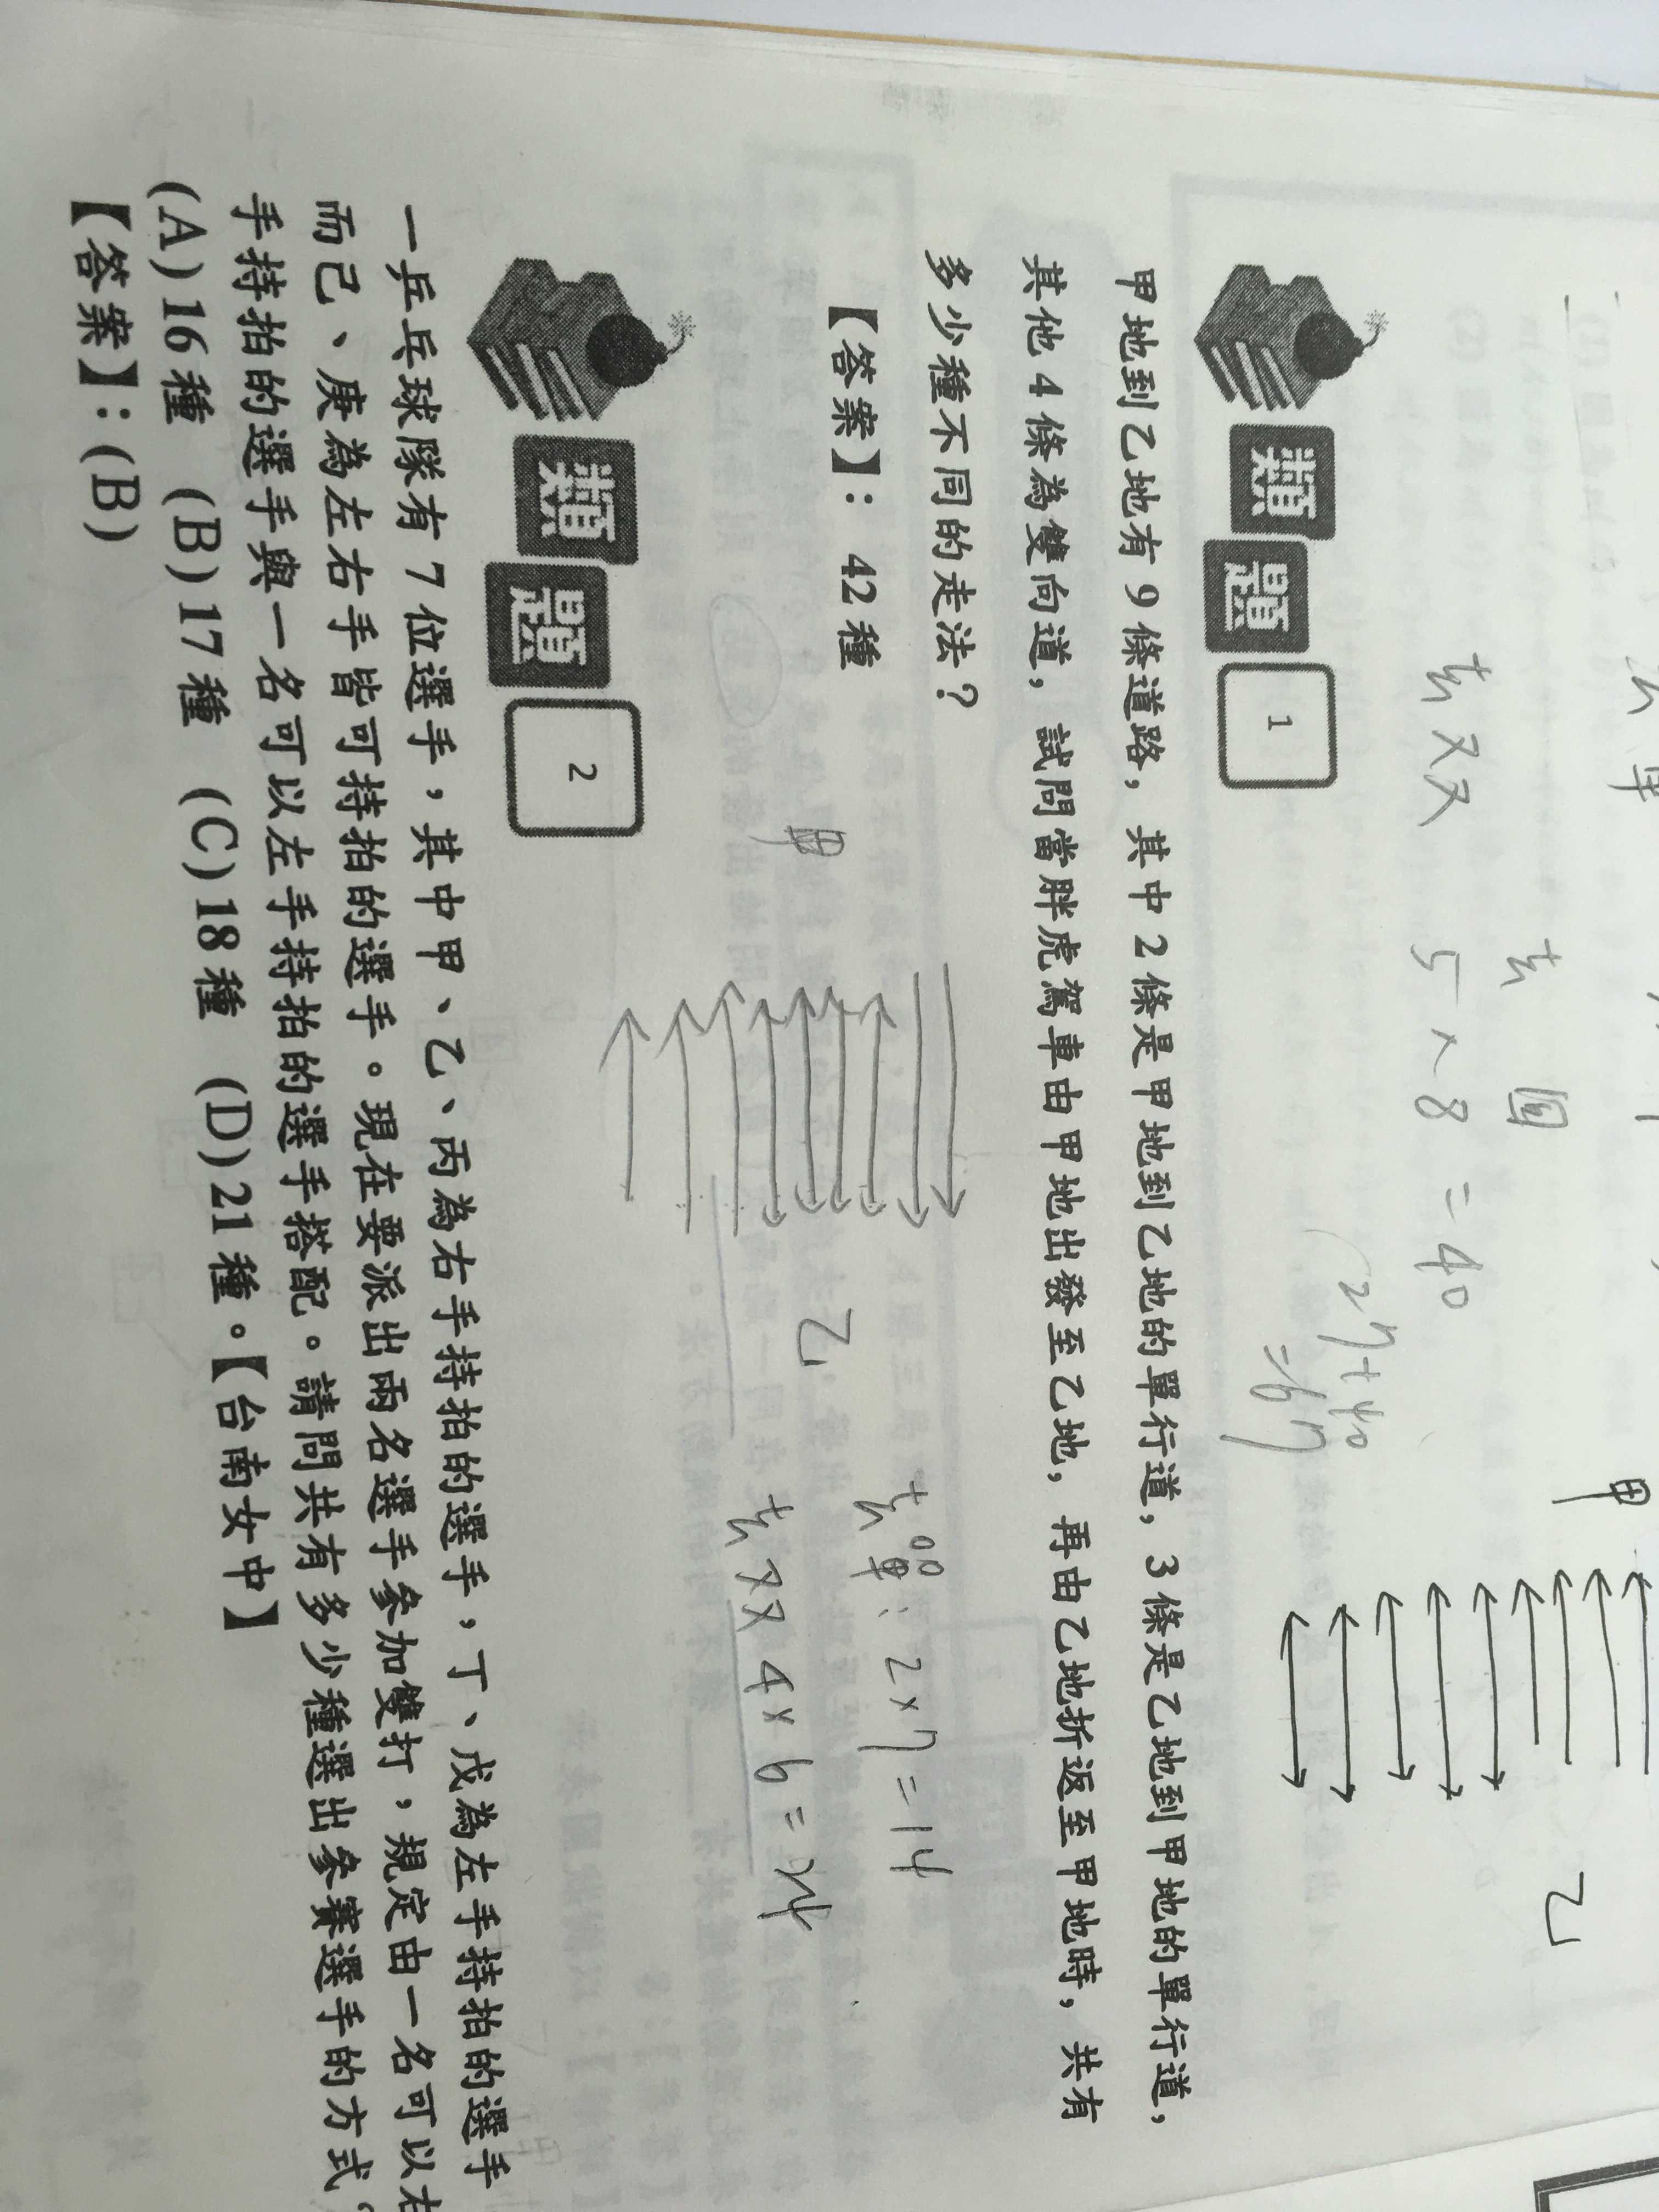 去單
去 回
去双 5×8=40
甲 乙
27+40
=67
類題 1
甲地到乙地有 9 條道路，其中 2 條是甲地到乙地的單行道，3 條是乙地到甲地的單行道，
其他 4 條為雙向道，試問當胖虎駕車由甲地出發至乙地，再由乙地折返至甲地時，共有
多少種不同的走法？
【答案】：42 種
甲 乙
去單：2×7=14
去双 4×6=24
類題 2
一乒乓球隊有 7 位選手，其中甲、乙、丙為右手持拍的選手，丁、戊為左手持拍的選手
而己、庚為左右手皆可持拍的選手。現在要派出兩名選手參加雙打，規定由一名可以右
手持拍的選手與一名可以左手持拍的選手搭配。請問共有多少種選出參賽選手的方式？
(A)16 種 (B)17 種 (C)18 種 (D)21 種。【台南女中】
【答案】：(B)